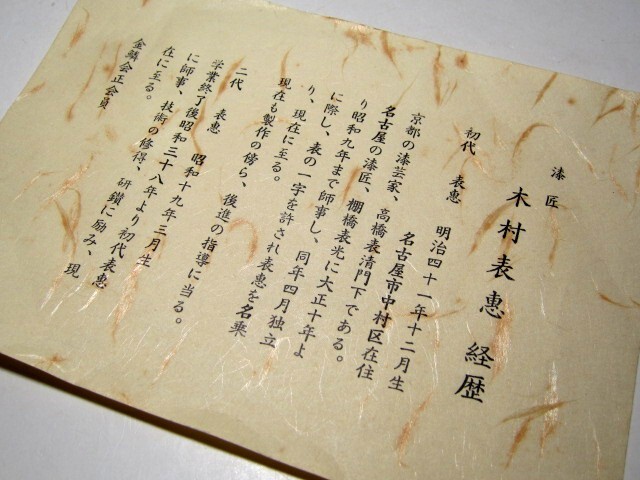 漆匠
木村表恵 経歴
初代 表恵 明治四十一年十二月生
名古屋市中村区在住
京都の漆芸家、高橋表清門下である。
名古屋の漆匠、棚橋表光に大正十年よ
り昭和九年まで師事し、同年四月独立
に際し、表の一字を許され表恵を名乗
り、現在に至る。
現在も製作の傍ら、後進の指導に当る。
二代 表恵 昭和十九年三月生
学業終了後昭和三十八年より初代表恵
に師事、技術の修得、研鑽に励み、現
在に至る。
金鱗会正会員